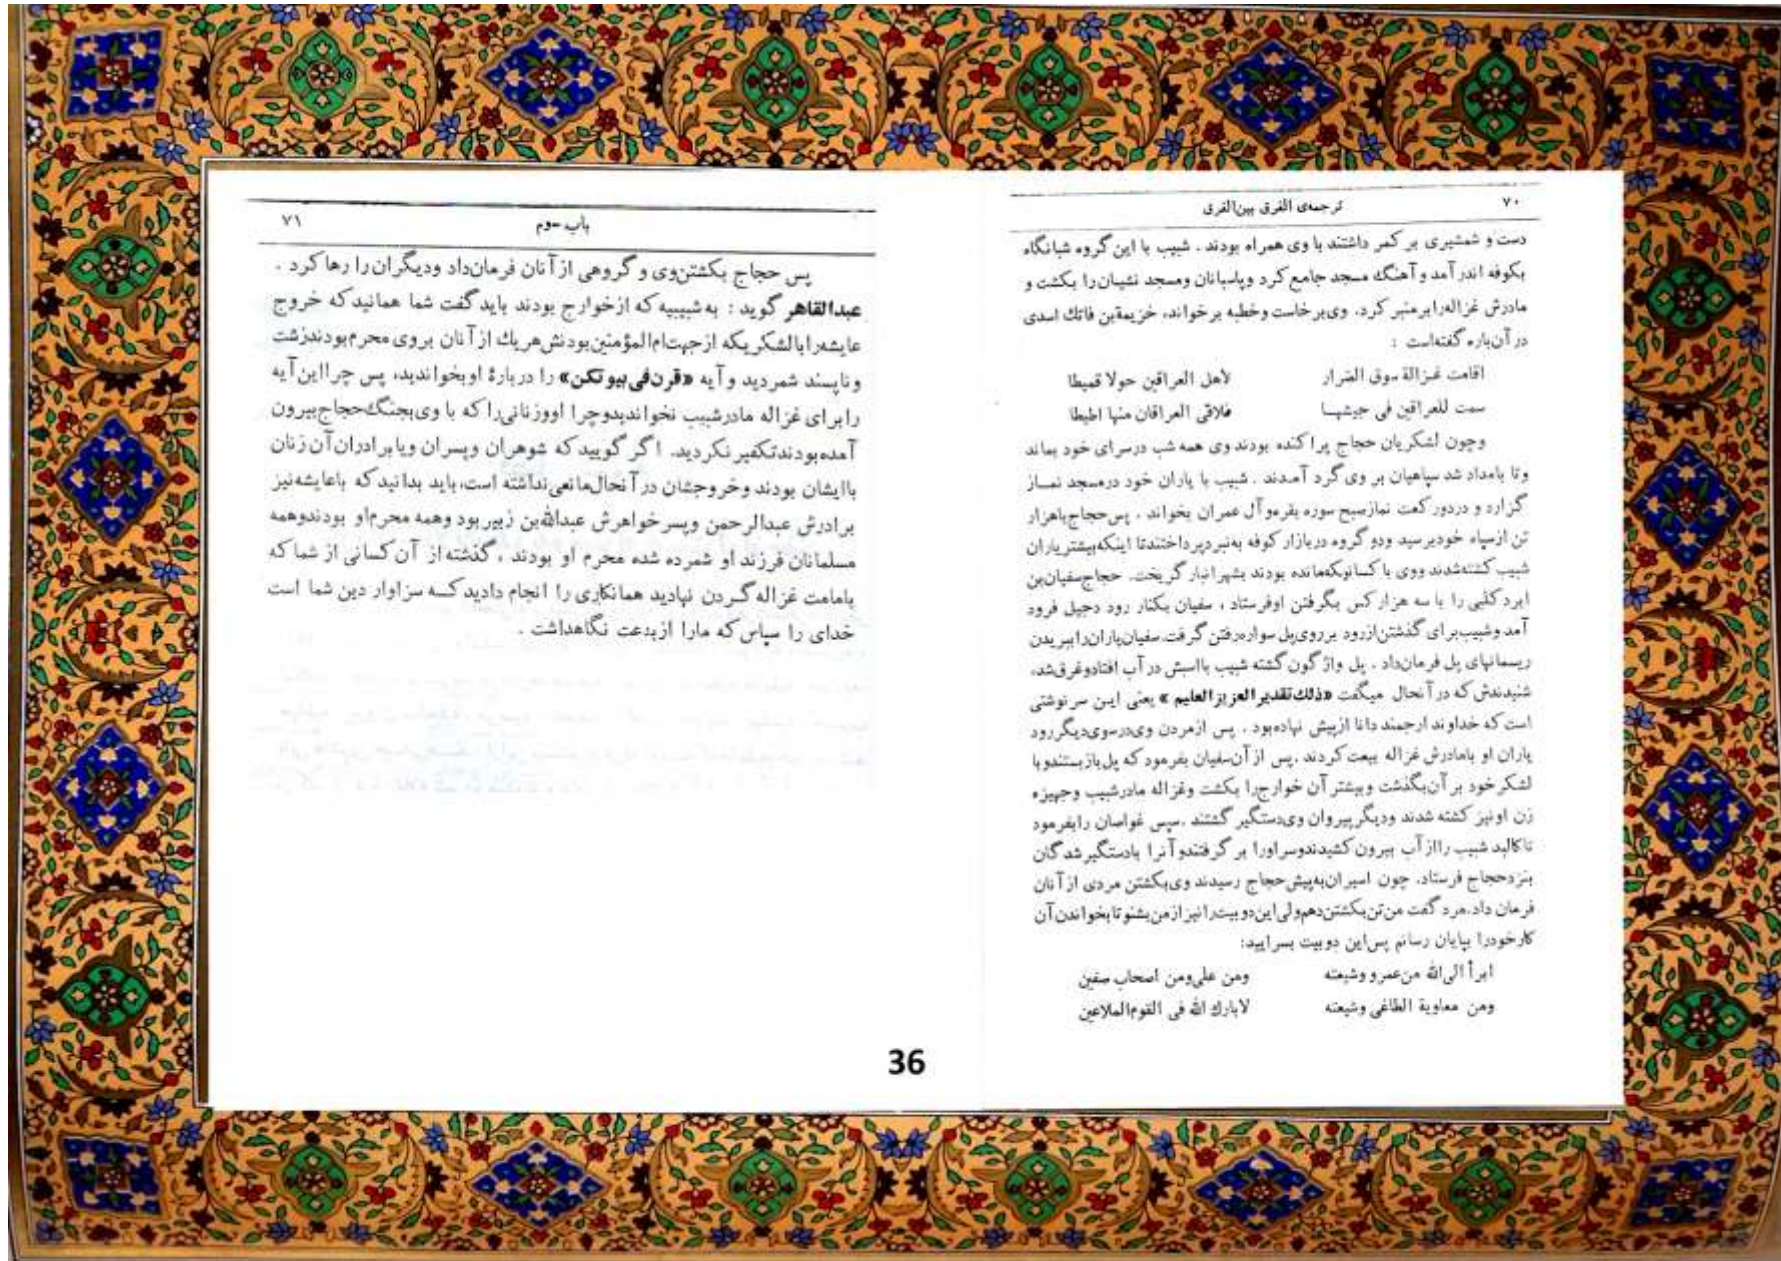 ۷۰ ترجمه‌ی الفرق بین‌الفرق
دست و شمشیری بر کمر داشتند با وی همراه بودند . شبیب با این گروه شبانگاه
بکوفه اندر آمد و آهنگ مسجد جامع کرد وپاسبانان ومسجد نشینان را بکشت و
مادرش غزاله‌رابرمنبر کرد. وی‌برخاست وخطبه برخواند، خزیمةبن فاتك اسدی
در آن‌باره گفته‌است :
اقامت غزالة سوق الضرار لاهل العراقین حولا قمیطا
سمت للعراقین فی جیشها فلاقی العراقان منها اطیطا
وچون لشکریان حجاج پراکنده بودند وی همه شب درسرای خود بماند
وتا بامداد شد سپاهیان بر وی گرد آمدند . شبیب با یاران خود درمسجد نماز
گزارد و دردورکعت نمازصبح سوره بقره‌وآل عمران بخواند . پس‌حجاج‌باهزار
تن ازسپاه خودبرسید ودو گروه دربازار کوفه به‌نبردپرداختندتا اینکه‌بیشتر یاران
شبیب کشته‌شدند ووی با کسانیکه‌مانده بودند بشهر انبار گریخت. حجاج‌سفیان‌بن
ابرد کلبی را با سه هزار کس بگرفتن اوفرستاد ، سفیان بکنار رود دجیل فرود
آمد وشبیب‌برای گذشتن‌ازرود برروی‌پل سواره‌رفتن گرفت.سفیان‌یاران‌راببریدن
ریسمانهای پل فرمان‌داد . پل واژگون گشته شبیب بااسبش در آب افتادوغرق‌شد،
شنیدندش که در آنحال میگفت «ذلك تقدیر العزیز العلیم » یعنی این سرنوشتی
است که خداوند ارجمند دانا ازپیش نهاده‌بود . پس ازمردن وی‌درسوی‌دیگررود
یاران او بامادرش غزاله بیعت کردند .پس از آن‌سفیان بفرمود که پل‌بازبستندوبا
لشکرخود بر آن‌بگذشت وبیشتر آن خوارج‌را بکشت وغزاله مادرشبیب وجهیزه
زن اونیز کشته شدند ودیگر پیروان وی‌دستگیر گشتند .سپس غواصان رابفرمود
تاکالبد شبیب رااز آب بیرون کشیدندوسراورا بر گرفتندو آنرا بادستگیر شدگان
بنزدحجاج فرستاد. چون اسیران‌به‌پیش‌حجاج رسیدند وی‌بکشتن مردی از آنان
فرمان داد.مرد گفت من‌تن‌بکشتن‌دهم‌ولی‌این‌دوبیت‌رانیز ازمن‌بشنو تابخواندن آن
کارخودرا بپایان رسانم پس‌این دوبیت بسرایید:
ابرأ الی‌الله من‌عمرو وشیعته ومن علی‌ومن اصحاب صفین
ومن معاویة الطاغی وشیعته لابارك الله فی القوم‌الملاعین
باب سوم ۷۱
پس حجاج بکشتن‌وی و گروهی از آنان فرمان‌داد ودیگران را رها کرد .
عبدالقاهر گوید : به‌شبیبیه که ازخوارج بودند باید گفت شما همانید که خروج
عایشه‌را بالشکریکه ازجهت‌ام‌المؤمنین‌بودنش‌هریك از آنان بروی محرم‌بودندزشت
وناپسند شمردید و آیه «قرن‌فی‌بیوتکن» را دربارهٔ او بخواندید، پس چرااین آیه
را برای غزاله مادرشبیب نخواندیدوچرا اووزنانی‌را که با وی‌بجنگ‌حجاج‌بیرون
آمده‌بودندتکفیر نکردید. اگر گویید که شوهران وپسران ویابرادران آن زنان
باایشان بودند وخروجشان در آنحال‌مانعی‌نداشته است، باید بدانید که باعایشه‌نیز
برادرش عبدالرحمن وپسرخواهرش عبدالله‌بن زبیر بود وهمه محرم‌او بودندوهمه
مسلمانان فرزند او شمرده شده محرم او بودند ، گذشته از آن کسانی از شما که
بامامت غزاله گردن نهادید همانکاری را انجام دادید که سزاوار دین شما است
خدای را سپاس که مارا ازبدعت نگاهداشت .
36